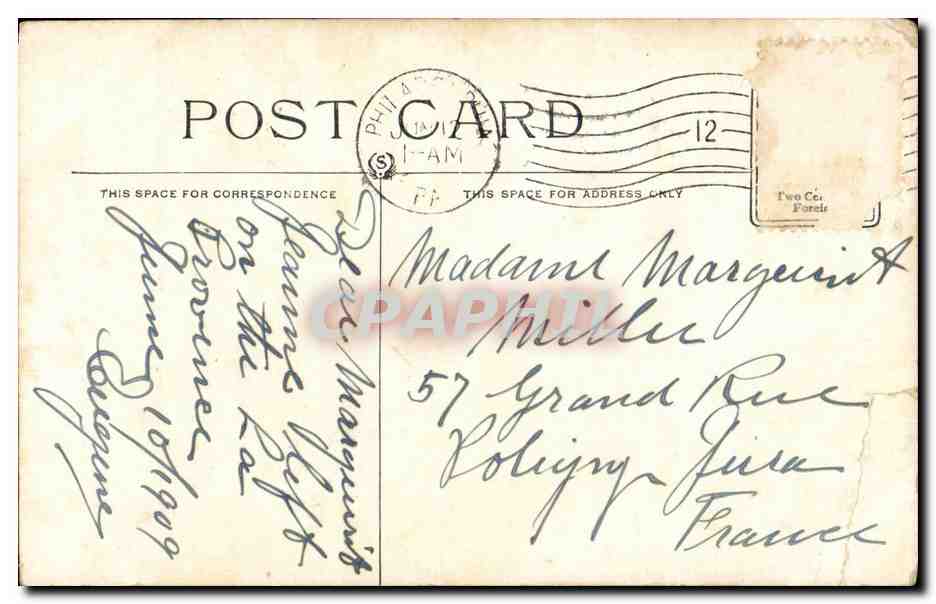 POST CARD
PHILADELPHIA
JUN 12
1-AM
PA
12
S
Two Ce
Foreig
THIS SPACE FOR CORRESPONDENCE
THIS SPACE FOR ADDRESS ONLY
Dear Marguerit
Jeanne left
on the La
Provence
June 10/1909
Eugene
Madame Marguerit
Miller
57 Grand Rue
Poligny Jura
France
CPAPHIL